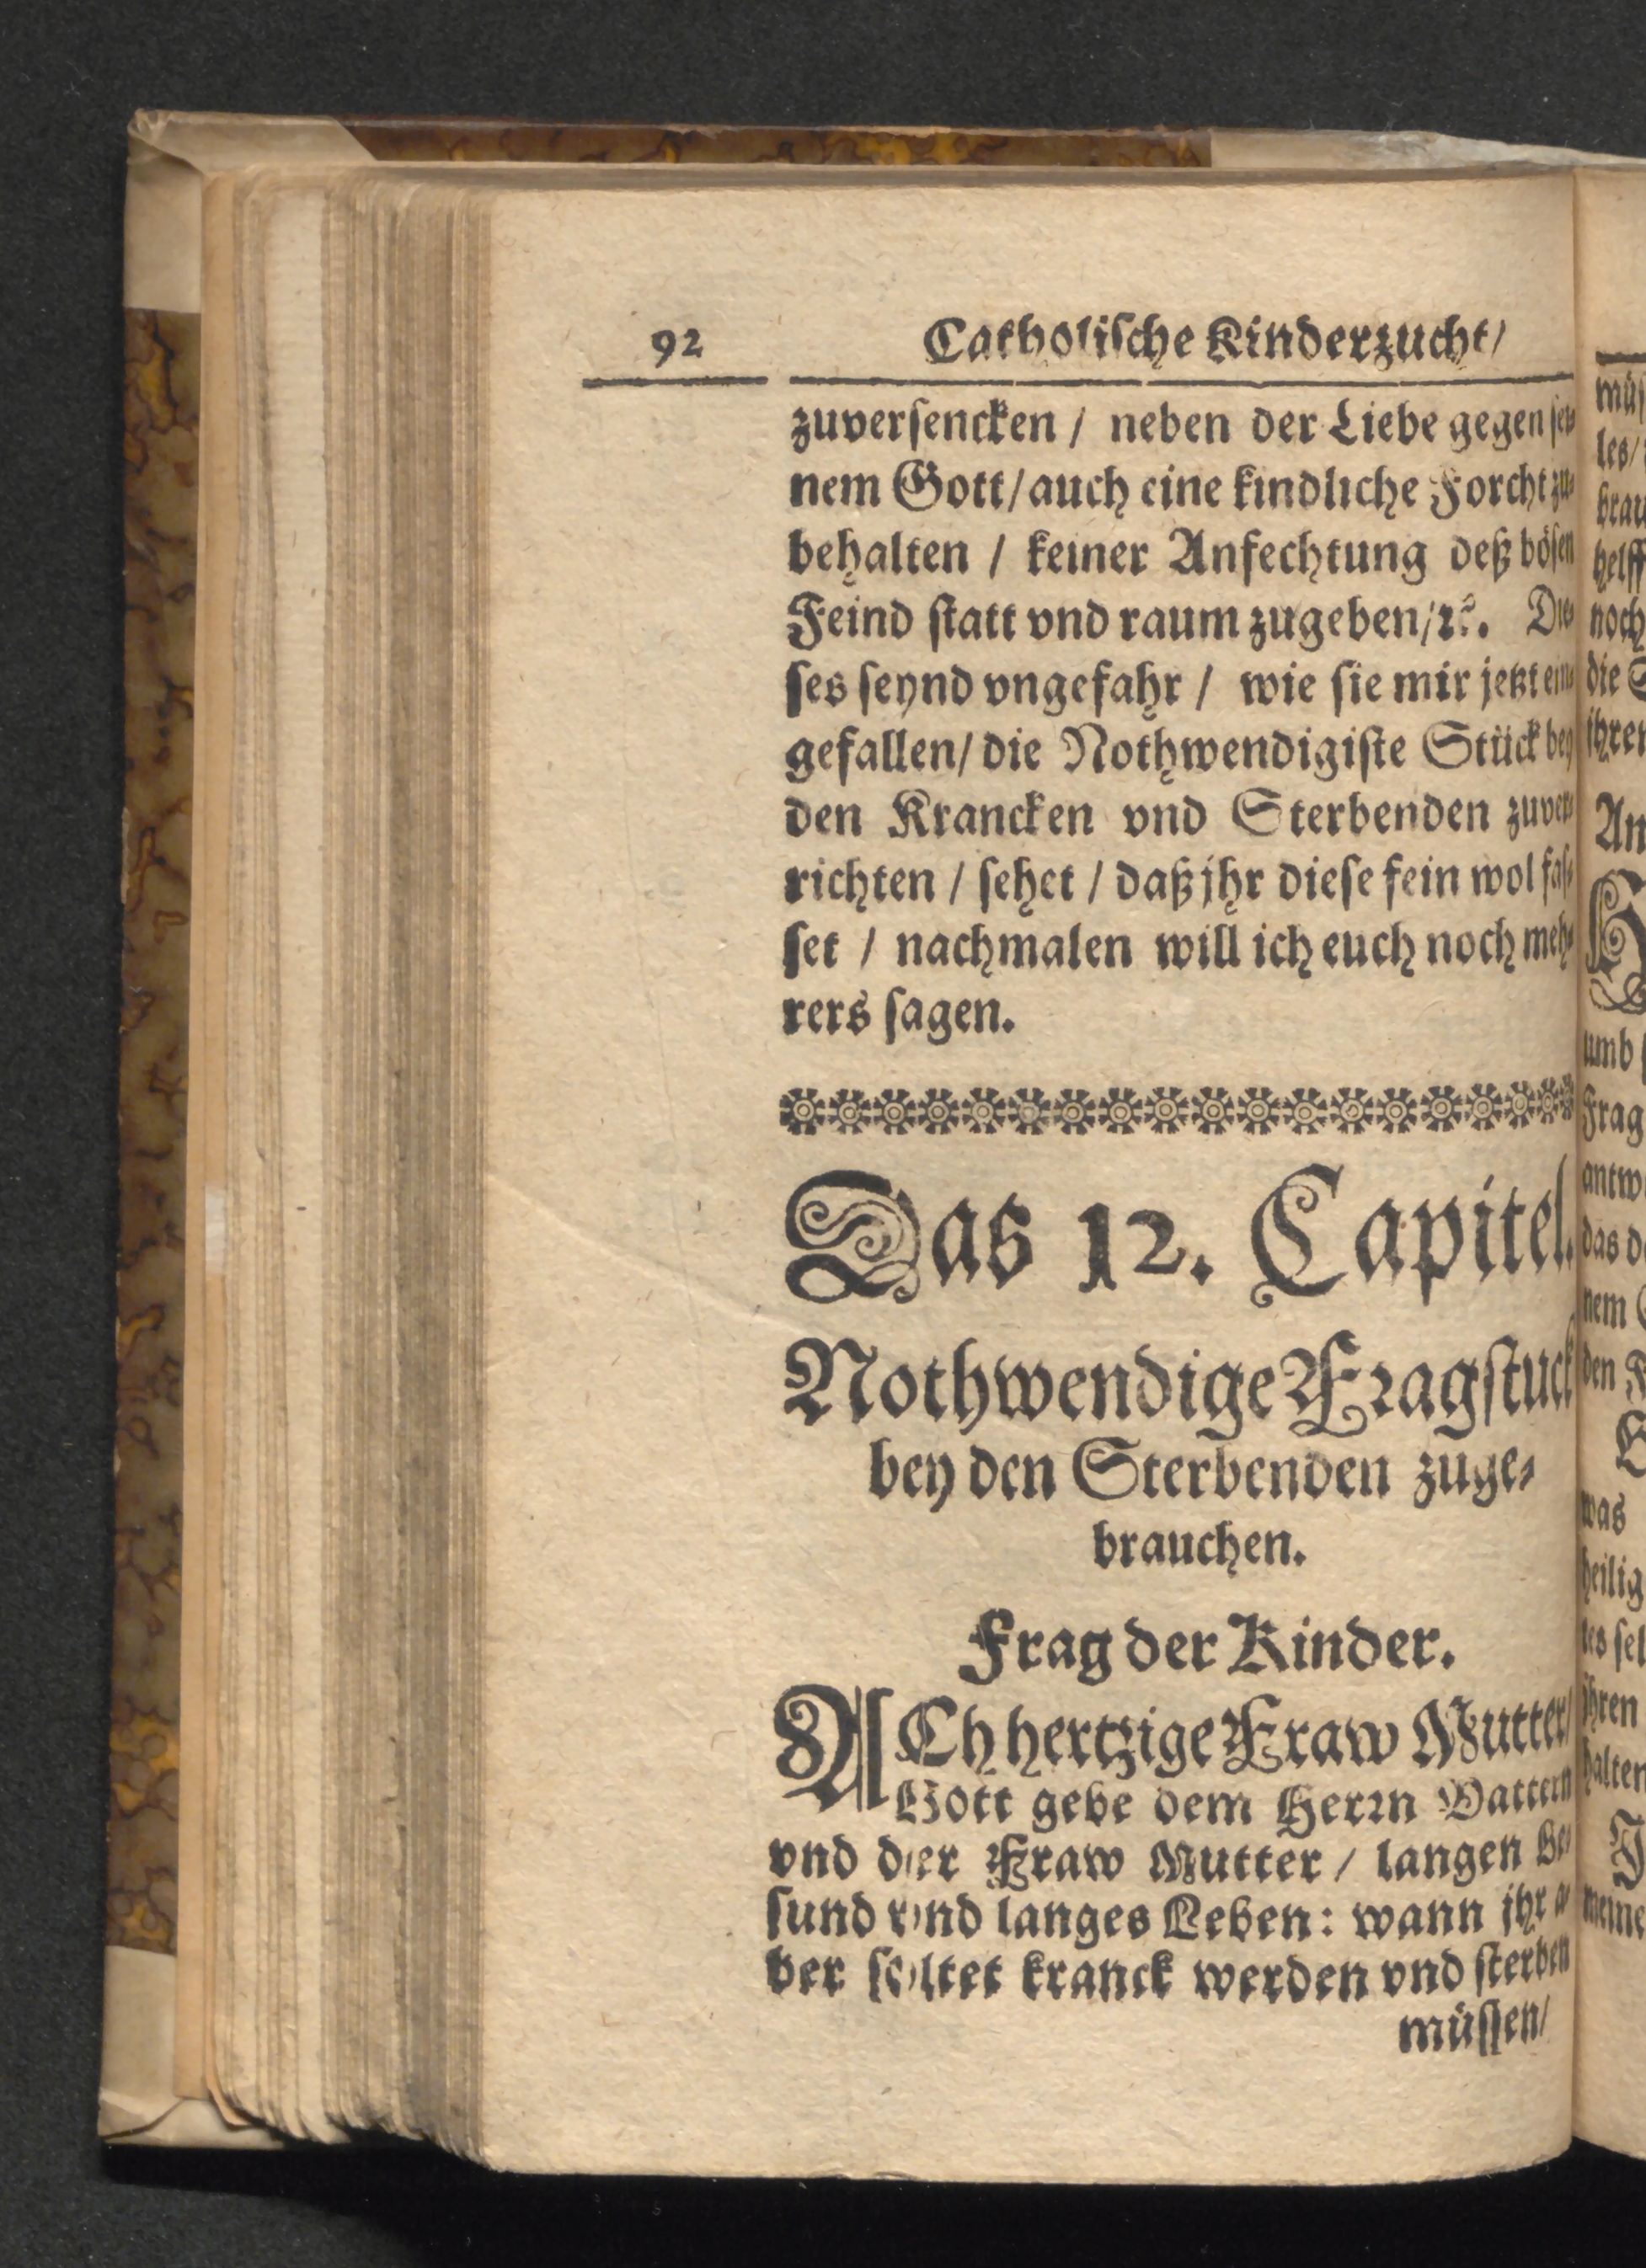 92 Catholische Kinderzucht/
zuversencken / neben der Liebe gegen sei-
nem Gott / auch eine kindliche Forcht zu-
behalten / keiner Anfechtung deß bösen
Feind statt vnd raum zugeben / ꝛc. Die-
ses seynd vngefahr / wie sie mir jetzt ein-
gefallen / die Nothwendigiste Stück bey
den Krancken vnd Sterbenden zuver-
richten / sehet / daß jhr diese fein wol fas-
set / nachmalen will ich euch noch meh-
rers sagen.
Das 12. Capitel.
Nothwendige Fragstuck
bey den Sterbenden zuge-
brauchen.
Frag der Kinder.
ACh hertzige Fraw Mutter /
Gott gebe dem Herrn Vattern
vnd der Fraw Mutter / langen Ge-
sund vnd langes Leben : wann jhr a-
ber soltet kranck werden vnd sterben
müssen /
müs
les /
brau
helff
noch
die
ihren
An
umb
Frag
antw
das d
nem
den
was
heilig
tes sel
ihren
halten
meine